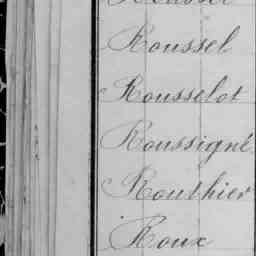 Roussel
Rousselot
Roussigné
Routhier
Roux